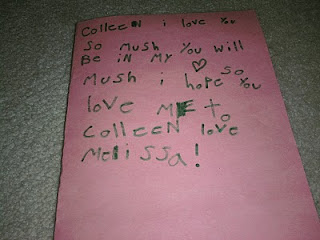 Colleen i love you
So mush you will
Be in my ♡ so
Mush i hope you
love ME to
Colleen love
Melissa!